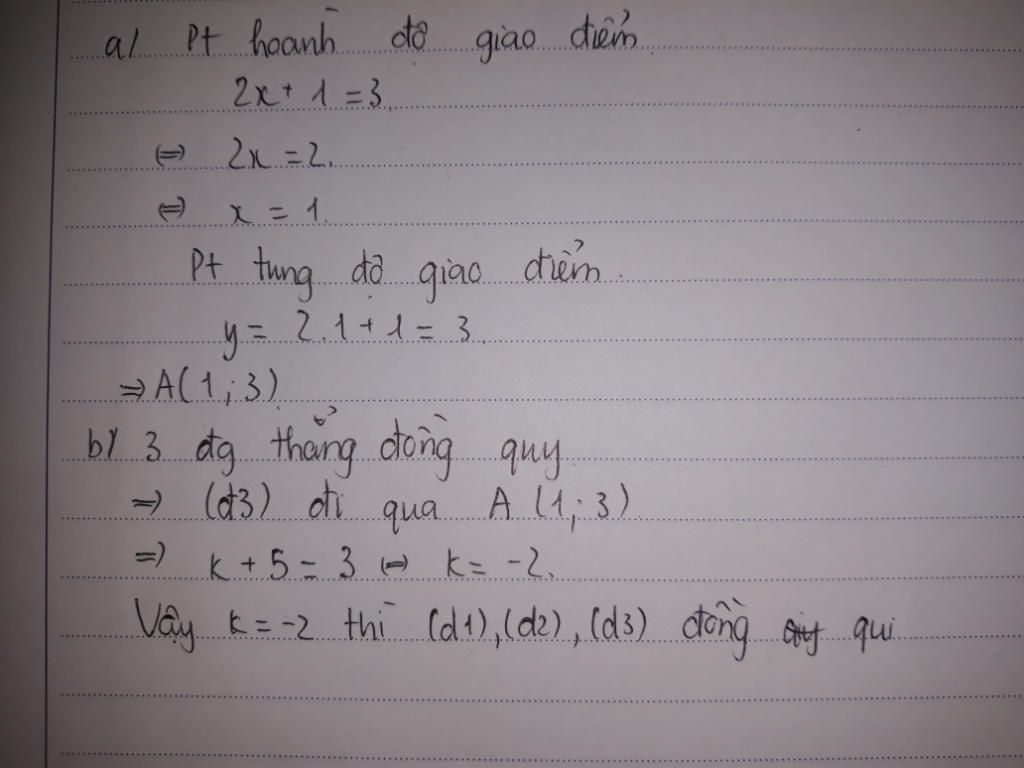 a/ Pt hoành độ giao điểm
2x + 1 = 3
⇔ 2x = 2.
⇔ x = 1.
Pt tung độ giao điểm.
y = 2.1 + 1 = 3
⇒ A(1;3)
b/ 3 đg thẳng đồng quy
⇒ (d3) đi qua A (1;3)
⇒ k + 5 = 3 ⇔ k = -2.
Vậy k = -2 thì (d1), (d2), (d3) đồng qui